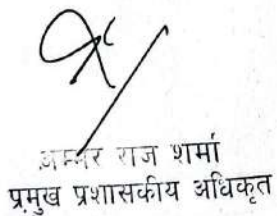 राज शर्मा
प्रमुख प्रशासकीय अधिकृत